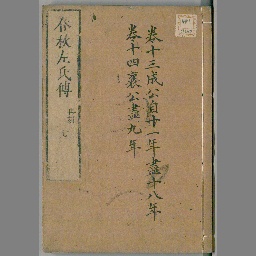 卷十三成公自十一年盡十八年
卷十四襄公盡九年
春秋左氏傳